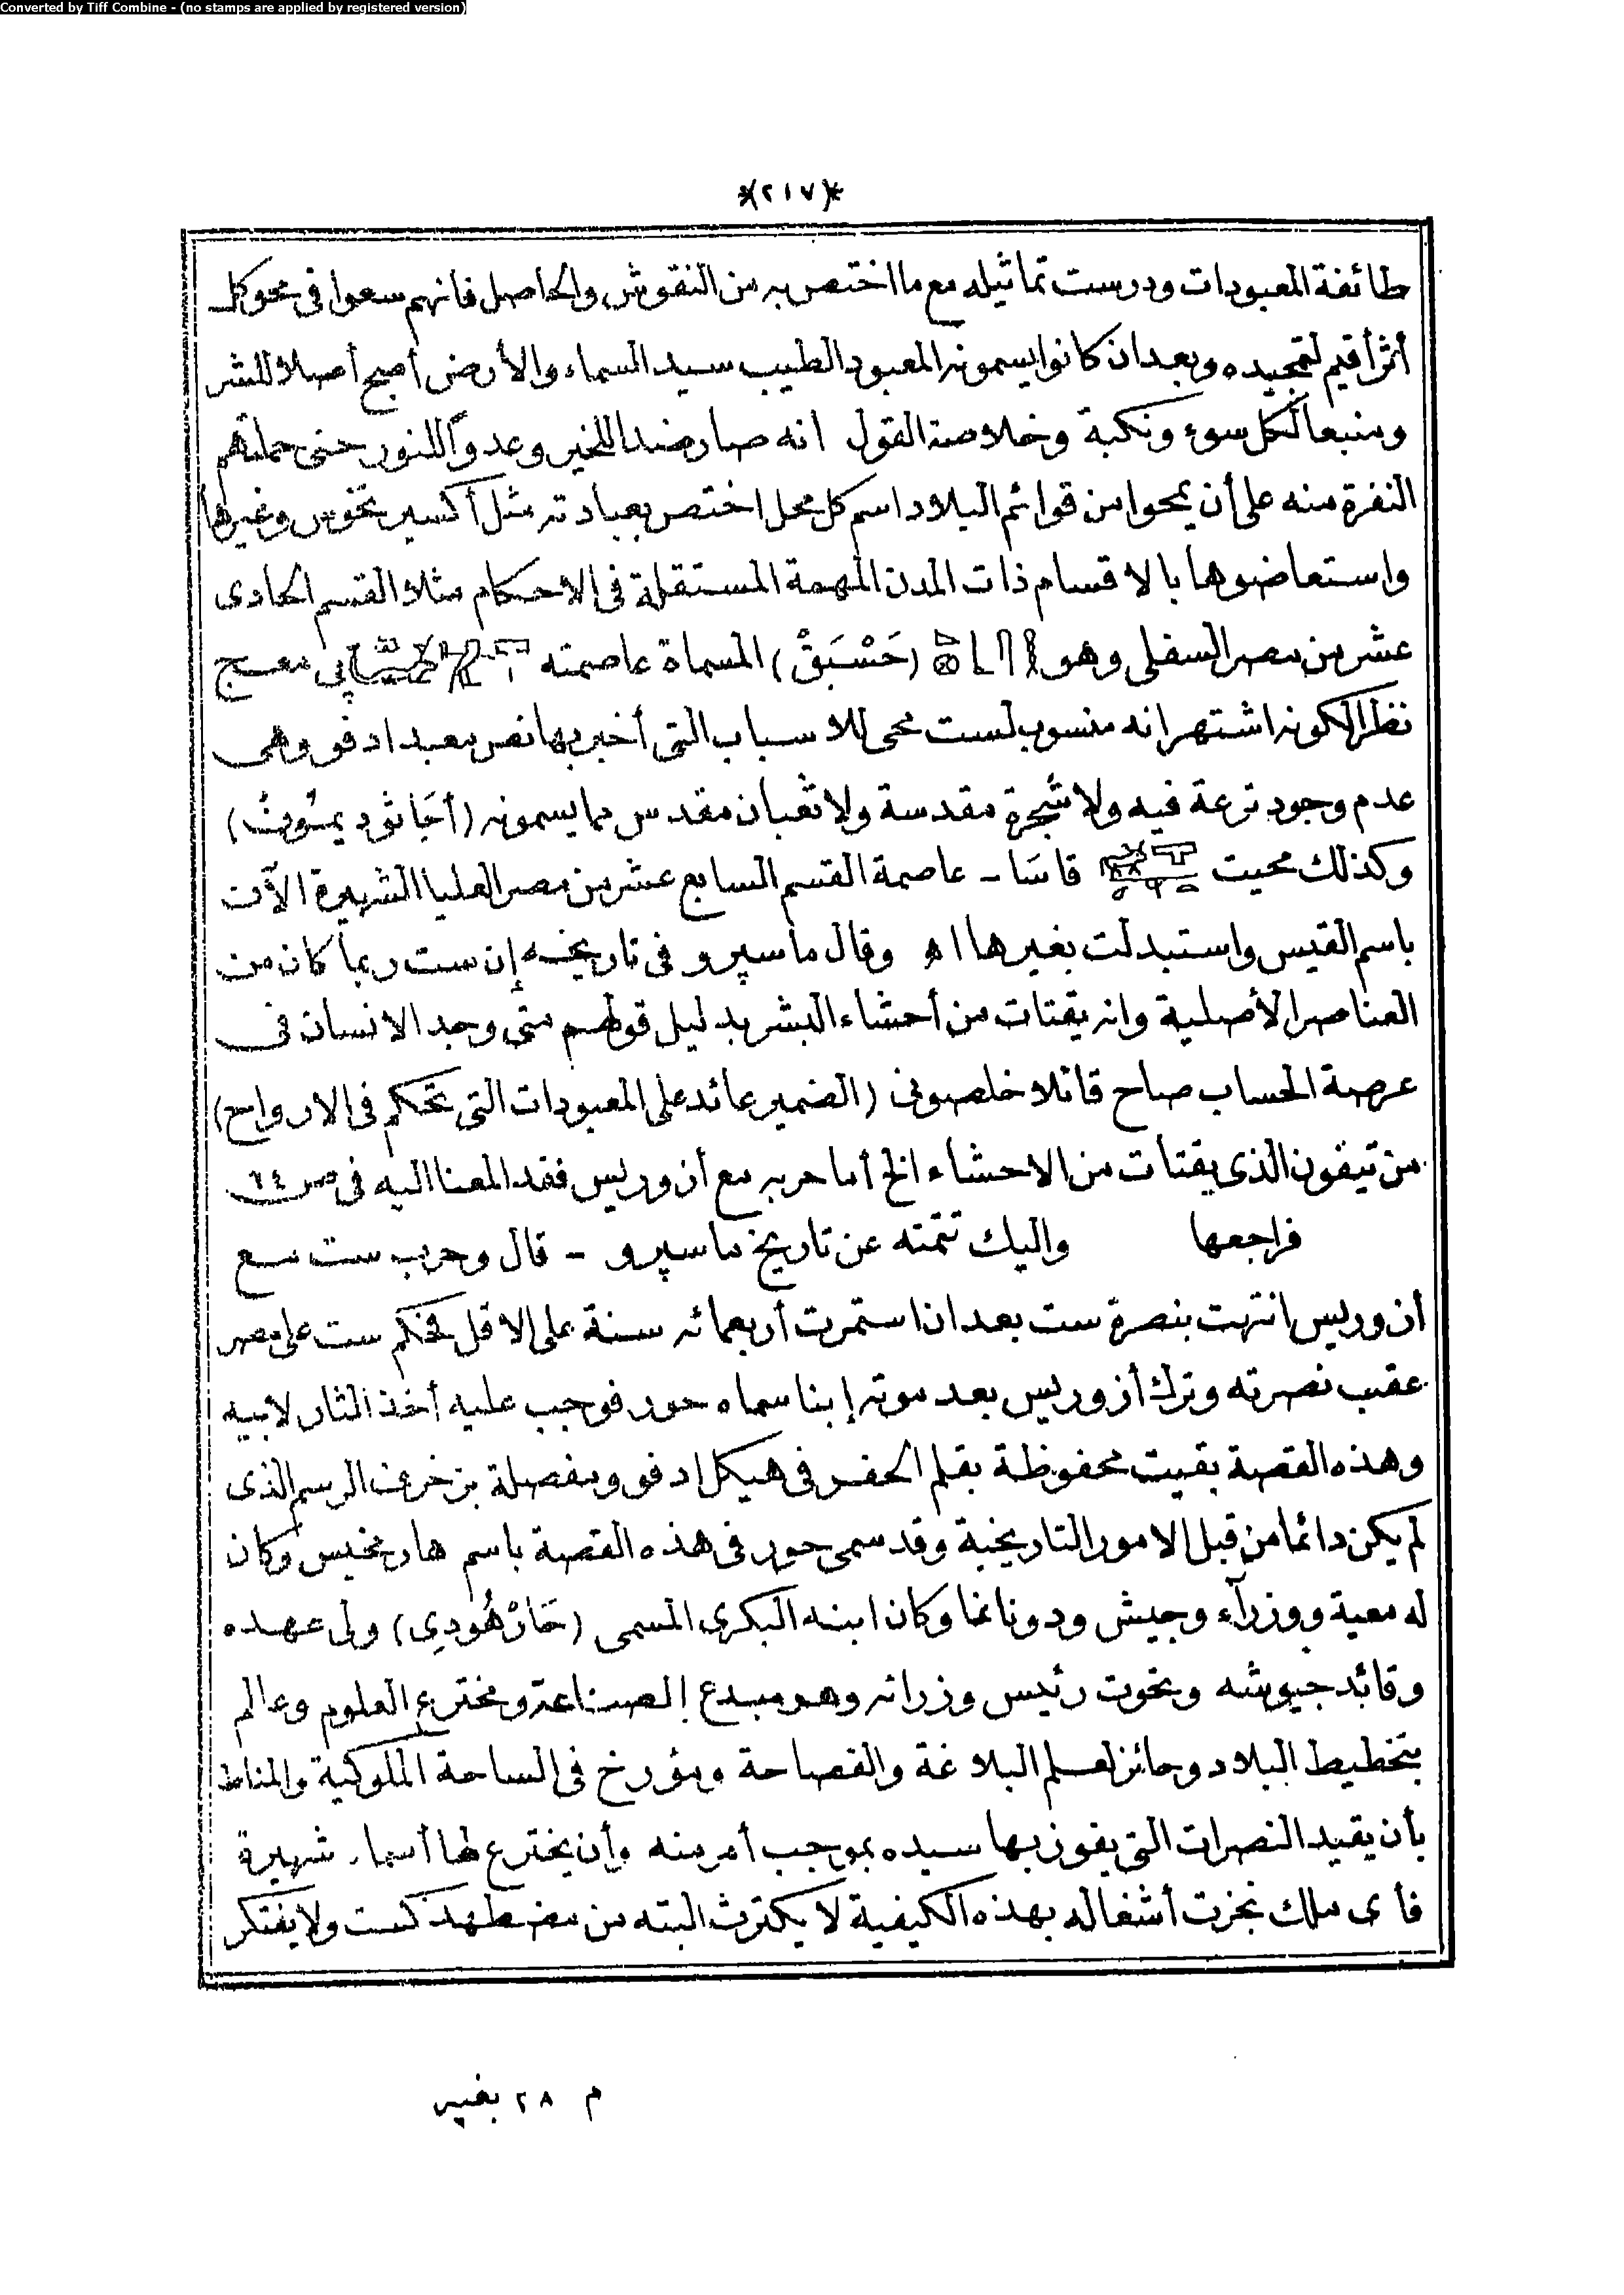 Converted by Tiff Combine - (no stamps are applied by registered version)
*(٢١٧)*
طائفة المعبودات ودرست تماثيله مع ما اختص به من النقوش والحاصل فانهم سعوا فى محو كل
أثر أقيم لتمجيده وبعد ان كانوا يسمونه المعبود الطيب سيد السماء والأرض أصبح أصلا للشر
ومنبعا لكل سوء ونكبة وخلاصة القول انه صار ضدا للخير وعدوّا للنور حتى حملتهم
النفرة منه على أن يمحوا من قوائم البلاد اسم كل محل اختص بعبادته مثل أكسيرنخوس وغيرها
واستعاضوها بالاقسام ذات المدن المهمة المستقلة فى الاحكام مثلا القسم الحادى
عشر من مصر السفلى وهو (حَسْبَقْ) المسماة عاصمته پى معسج
نظرا لكونه اشتهر انه منسوب لست محى للاسباب التى أخبر بها نص معبد ادفو وهى
عدم وجود ترعة فيه ولا شجرة مقدسة ولا ثعبان مقدس مما يسمونه
وكذلك محيت قاسَا - عاصمة القسم السابع عشر من مصر العليا الشهيرة الآن
باسم القيس واستبدلت بغيرها اه وقال ماسپرو فى تاريخه إن ست ربما كان من
العناصر الأصلية وانه يقتات من أحشاء البشر بدليل قولهم متى وجد الانسان فى
عرصة الحساب صاح قائلا خلصونى (الضمير عائد على المعبودات التى تحكم فى الارواح)
من تيفون الذى يقتات من الاحشاء الخ أما حربه مع أزوريس فقد المعنا اليه فى ص ٦٤
فراجعها واليك تتمته عن تاريخ ماسپرو - قال وحرب ست مع
أزوريس انتهت بنصرة ست بعد ان استمرت أربعمائه سنة على الاقل فحكم ست على مصر
عقب نصرته وترك أزوريس بعد موته إبنا سماه حور فوجب عليه أخذ الثار لابيه
وهذه القصة بقيت محفوظة بقلم الحفر فى هيكل ادفو ومفصلة بزخرف الرسم الذى
لم يكن دائما من قبل الامور التاريخية وقد سمى حور فى هذه القصة باسم هارمخيس وكان
له معية ووزرآء وجيش ودونانما وكان ابنه البكرى المسمى (حَارْهُودِى) ولى عهده
وقائد جيوشه وتحوت رئيس وزرائه وهو مبدع الصناعة ومخترع العلوم وعالم
بتخطيط البلاد وحائز لعلم البلاغة والفصاحة ومؤرخ فى الساحة الملوكية والمناط
بأن يقيد النصرات التى يفوز بها سيده بموجب أمر منه وأن يخترع لها أسماء شهيرة
فأى ملك نجزت أشغاله بهذه الكيفية لا يكترث البته من مضطهد كست ولا يفتكر
م ٢٨ بغيه